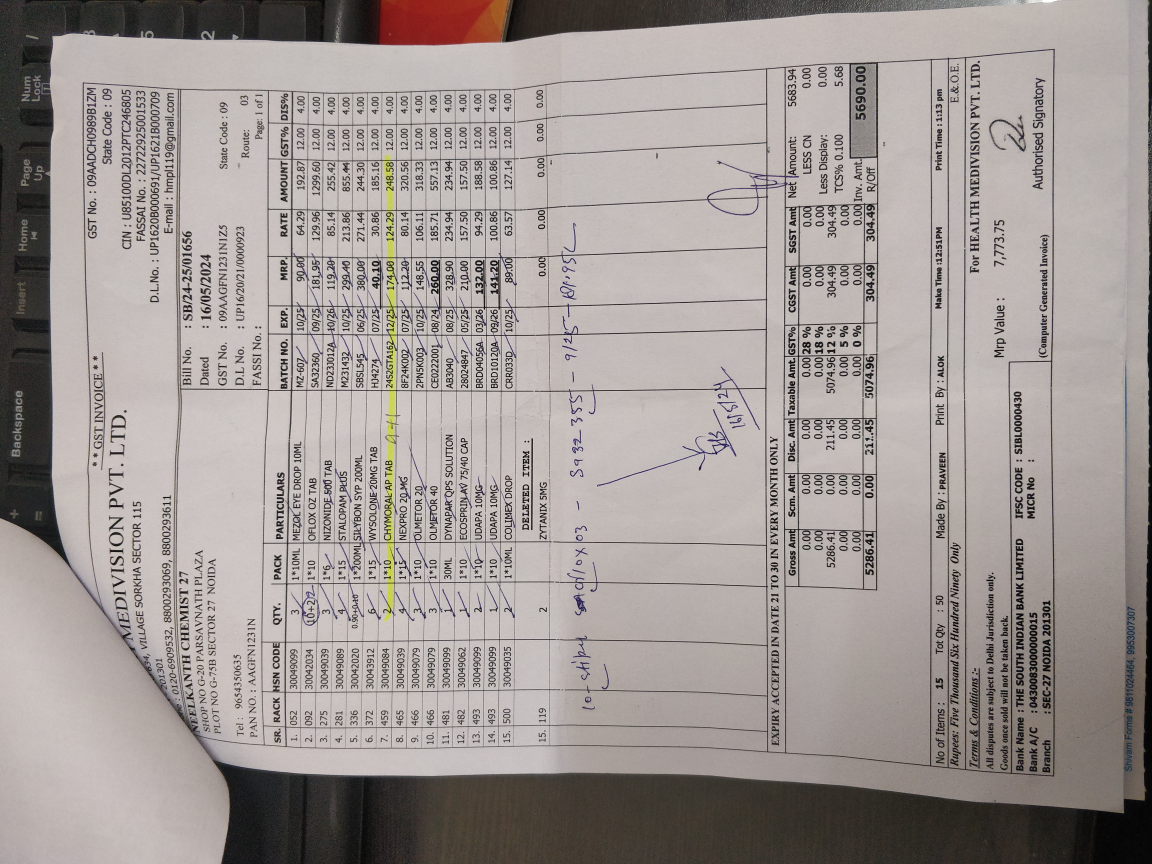 ** GST INVOICE **
GST No. : 09AADCH0989B1ZM
State Code : 09
MEDIVISION PVT. LTD.
CIN : U85100DL2012PTC246805
VILLAGE SORKHA SECTOR 115
FASSAI No. : 22722925001533
201301
D.L.No. : UP1620B000691/UP1621B000709
: 0120-6909532, 8800293069, 8800293611
E-mail : hmpl119@gmail.com
NEELKANTH CHEMIST 27
SHOP NO G-20 PARSAVNATH PLAZA
PLOT NO G-75B SECTOR 27 NOIDA
Tel : 9654350635
PAN NO. : AAGFN1231N
Bill No. : SB/24-25/01656
Dated : 16/05/2024
GST No. : 09AAGFN1231N1Z5 State Code : 09
D.L No. : UP16/20/21/0000923 Route: 03
FASSI No. : Page: 1 of 1
SR. RACK HSN CODE QTY. PACK PARTICULARS BATCH NO. EXP. MRP. RATE AMOUNT GST% DIS%
1. 052 30049099 3 1*10ML MEZOL EYE DROP 10ML MZ-607 10/25 90.00 64.29 192.87 12.00 4.00
2. 092 30042034 10+2/2 1*10 OFLOX OZ TAB SA32360 09/25 181.95 129.96 1299.60 12.00 4.00
3. 275 30049039 3 1*6 NIZONIDE 500 TAB ND233012A 10/26 119.20 85.14 255.42 12.00 4.00
4. 281 30049089 4 1*15 STALOPAM PLUS M231432 10/25 299.40 213.86 855.44 12.00 4.00
5. 336 30042020 0.90+0.10 1*200ML SILYBON SYP 200ML SBSL545 06/25 380.00 271.44 244.30 12.00 4.00
6. 372 30043912 6 1*15 WYSOLONE 20MG TAB HJ4274 07/25 40.10 30.86 185.16 12.00 4.00
7. 459 30049084 2 1*10 CHYMORAL AP TAB 24S2GTA162 12/25 174.00 124.29 248.58 12.00 4.00
8. 465 30049039 4 1*15 NEXPRO 20 MG 8F24K002 07/25 112.20 80.14 320.56 12.00 4.00
9. 466 30049079 3 1*10 OLMETOR 20 2PN5K003 10/25 148.55 106.11 318.33 12.00 4.00
10. 466 30049079 3 1*10 OLMETOR 40 CE0222001 08/24 260.00 185.71 557.13 12.00 4.00
11. 481 30049099 1 30ML DYNAPAR QPS SOLUTION AB3040 08/25 328.90 234.94 234.94 12.00 4.00
12. 482 30049062 1 1*10 ECOSPRIN AV 75/40 CAP 28024847 05/25 210.00 157.50 157.50 12.00 4.00
13. 493 30049099 2 1*10 UDAPA 10MG BRD04056A 03/26 132.00 94.29 188.58 12.00 4.00
14. 493 30049099 1 1*10 UDAPA 10MG BRD10120A 09/26 141.20 100.86 100.86 12.00 4.00
15. 500 30049035 2 1*10ML COLIMEX DROP CR8033D 10/25 89.00 63.57 127.14 12.00 4.00
DELETED ITEM :
15. 119 2 ZYTANIX 5MG 0.00 0.00 0.00 0.00
9/25
16/5/24
EXPIRY ACCEPTED IN DATE 21 TO 30 IN EVERY MONTH ONLY
Gross Amt Scm. Amt Disc. Amt Taxable Amt. GST% CGST Amt SGST Amt Net Amount: 5683.94
0.00 0.00 0.00 0.00 28 % 0.00 0.00 LESS CN 0.00
0.00 0.00 0.00 0.00 18 % 0.00 0.00 Less Display: 0.00
5286.41 0.00 211.45 5074.96 12 % 304.49 304.49 TCS% 0.100 5.68
0.00 0.00 0.00 0.00 5 % 0.00 0.00
0.00 0.00 0.00 0.00 0 % 0.00 0.00 Inv. Amt. 5690.00
5286.41 0.00 211.45 5074.96 304.49 304.49 R/Off
No of Items : 15 Tot Qty : 50 Made By : PRAVEEN Print By : ALOK Make Time :12:51PM Print Time : 1:13 pm
Rupees: Five Thousand Six Hundred Ninety Only E.& O.E.
Terms & Conditions :-
All disputes are subject to Delhi Jurisdiction only.
Goods once sold will not be taken back.
For HEALTH MEDIVISION PVT. LTD.
Mrp Value : 7,773.75
Bank Name : THE SOUTH INDIAN BANK LIMITED IFSC CODE : SIBL0000430
Bank A/C : 0430083000000015 MICR No :
Branch : SEC-27 NOIDA 201301
(Computer Generated Invoice)
Authorised Signatory
Shivam Forms # 9811024464, 9953007307
Backspace
Insert
Home
Page Up
Num Lock
/